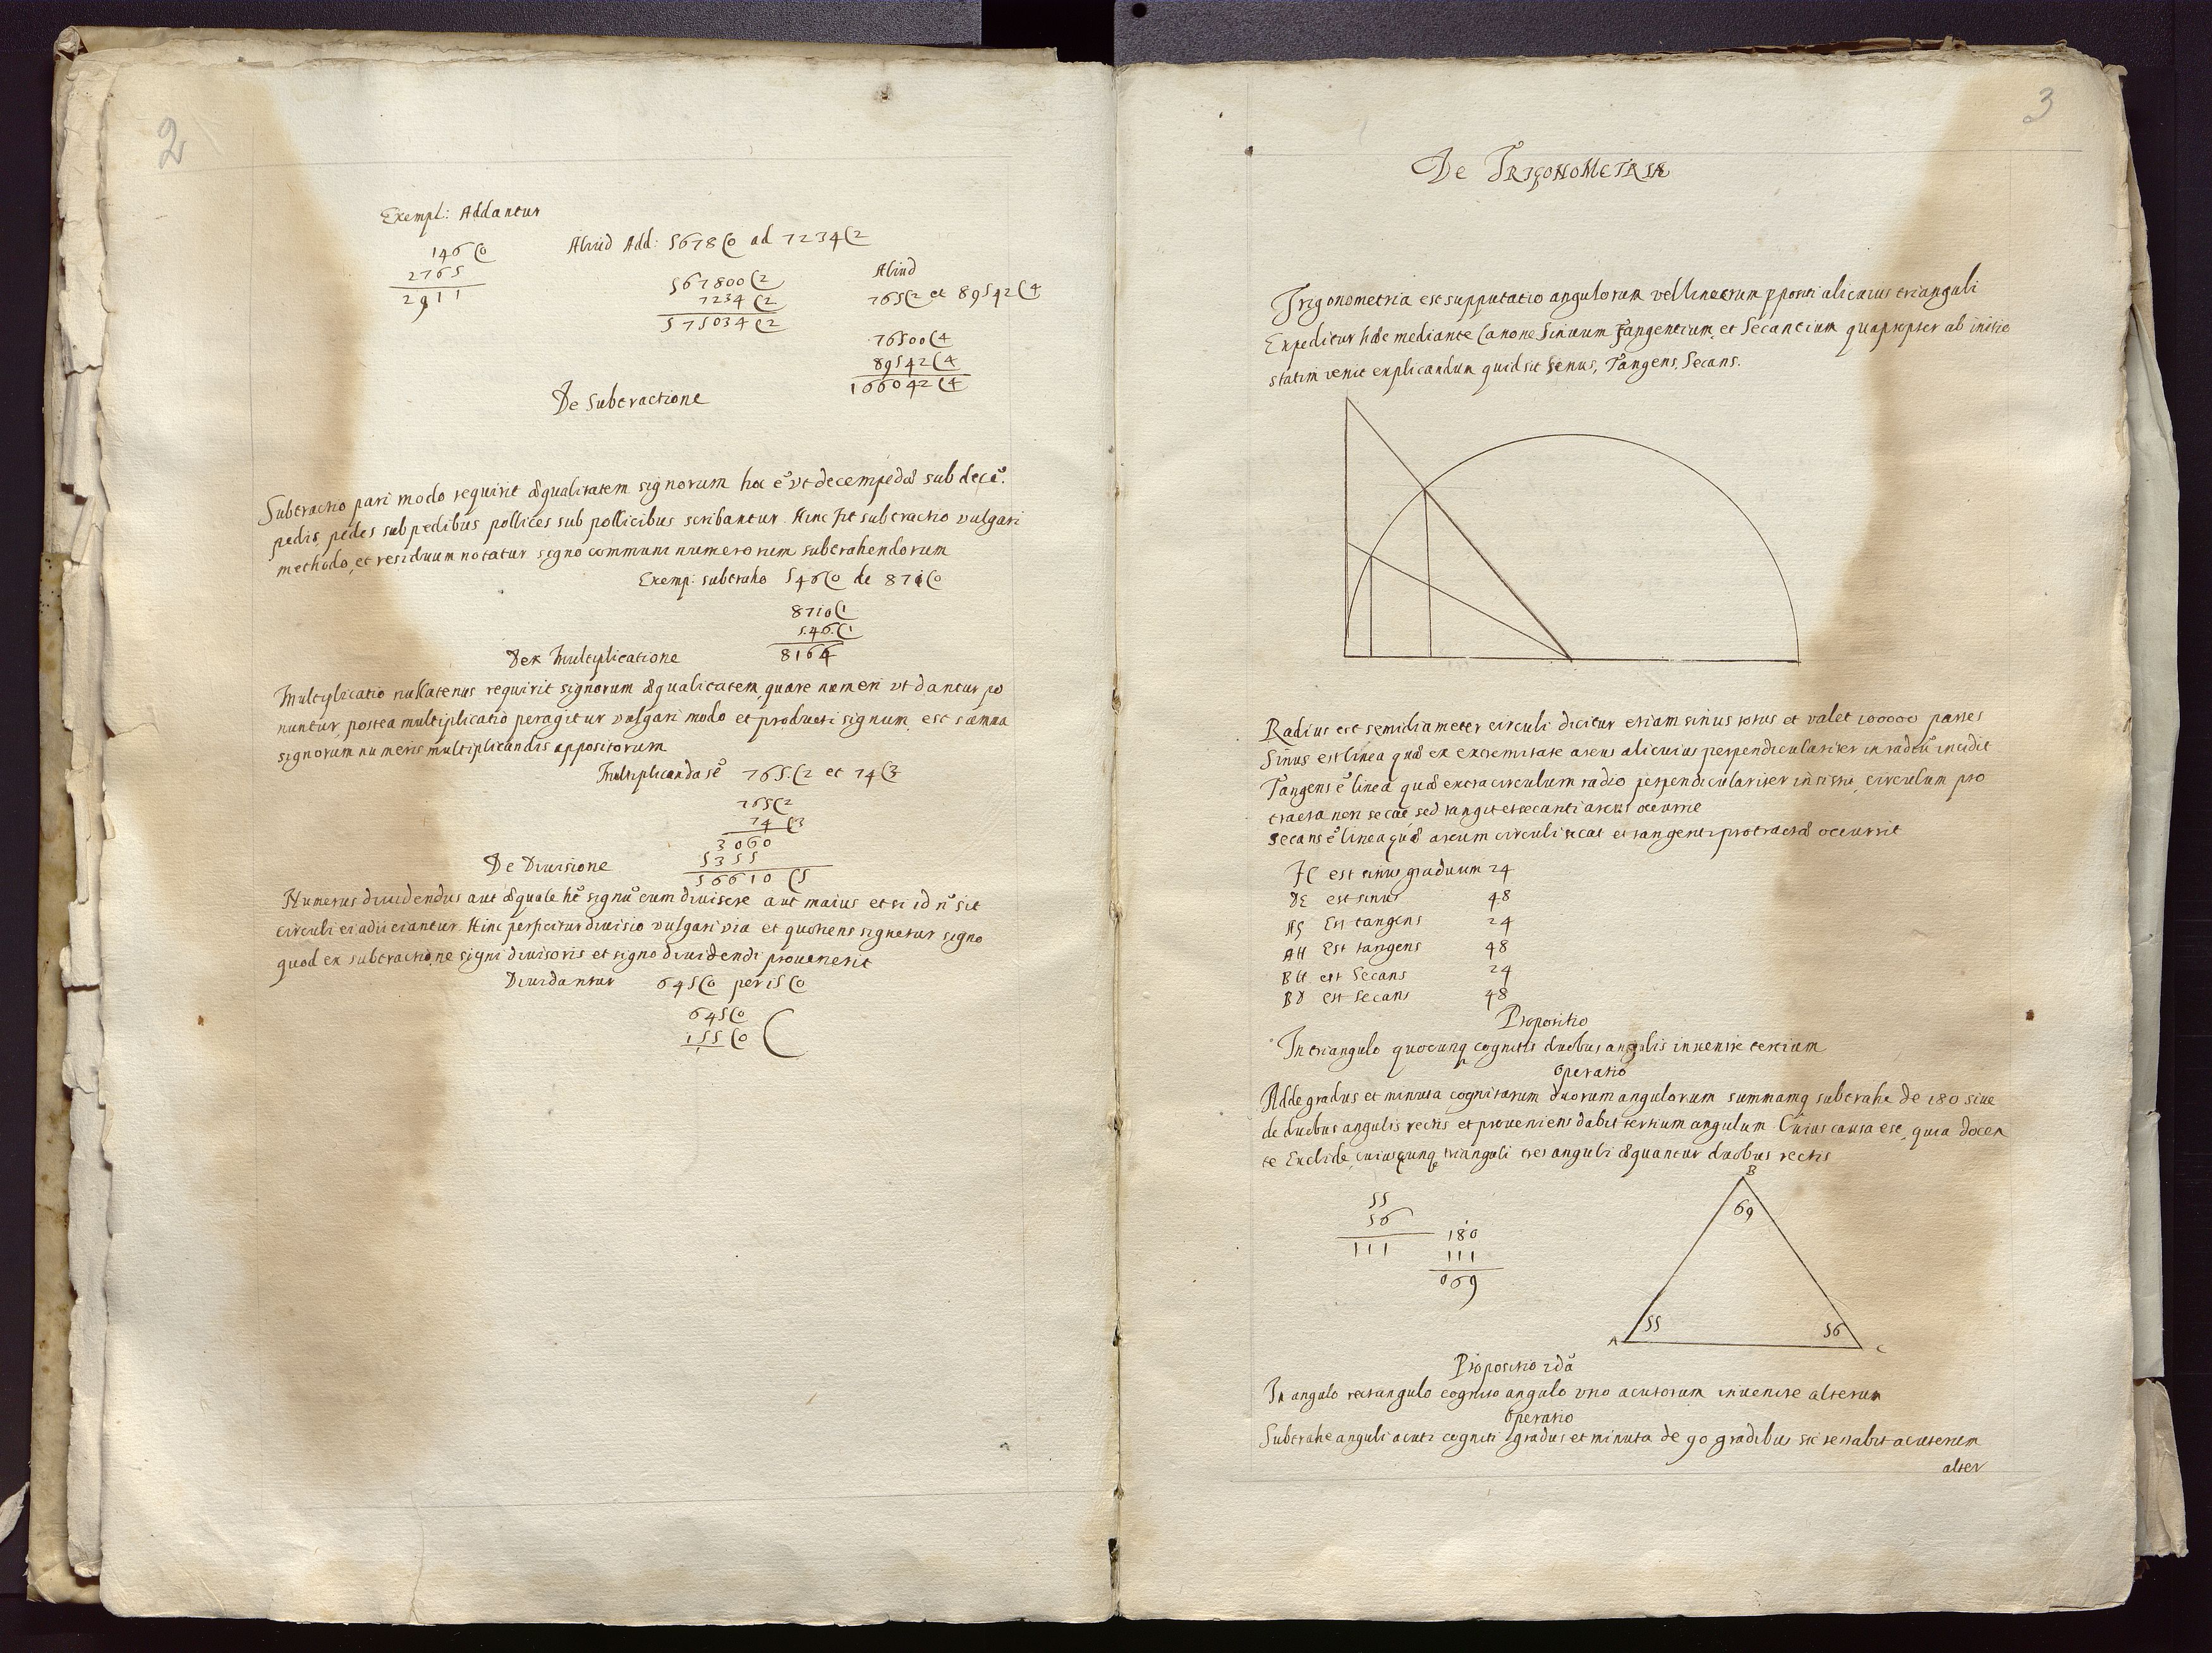 2
Exempl: Addantur
146(0
2765
2911
Aliud Add: 5678(0 ad 7234(2
567800(2
7234(2
575034(2
Aliud
765(2 et 89542(4
76500(4
89542(4
166042(4
De Subtractione
Subtractio pari modo requirit æqualitatem signorum hoc ē vt decempedæ sub decē.
pedis, pedes sub pedibus pollices sub pollicibus scribantur. Hinc fit subtractio vulgari
methodo, et residuum notatur signo communi numerorum subtrahendorum
Exemp: subtraho 546(0 de 871(0
8710(1
546(1
8164
De Multiplicatione
Multiplicatio nullatenus requirit signorum æqualitatem, quare numeri vt dantur po
nuntur, postea multiplicatio peragitur vulgari modo et producti signum est summa
signorum numeris multiplicandis appositorum
Multiplicanda sē 765(2 et 74(3
765(2
74(3
3060
5355
56610(5
De Diuisione
Numerus diuidendus aut æquale hē signū cum diuisore aut maius et si id n̄ sit
circuli ei adiiciantur. Hinc perficitur diuisio vulgari via et quotiens signetur signo
quod ex subtractione signi diuisoris et signo diuidendi prouenerit
Diuidantur 645(0 per 15(0
645(0
155(0 (
3
De TRIGONOMETRIA
Trigonometria est supputatio angulorum vel linearum ppositi alicuius trianguli
Expeditur hæc mediante Canone Sinuum Tangentium, et Secantium quapropter ab initio
statim venit explicandum quid sit Senus, Tangens, Secans.
Radius est semidiameter circuli dicitur etiam sinus totus et valet 100000 partes
Sinus est linea quæ ex extremitate arcus alicuius perpendiculariter in radiū incidit
Tangens ē linea quæ extra circulum radio perpendiculariter insistit, circulum pro
tracta non secat sed tangit et secanti arcus ocurrit
Secans ē linea quæ arcum circuli secat et tangenti protractæ occurrit
FC est sinus graduum 24
DE est sinus 48
AG Est tangens 24
AH Est tangens 48
BG est Secans 24
BD est Secans 48
Propositio
In triangulo quocunq cognitis duobus angulis inuenire tertium
Operatio
Adde gradus et minuta cognitarum duorum angulorum summamq subtrahe de 180 siue
de duobus angulis rectis et proueniens dabit tertium angulum. Cuius causa est, quia docen
te Euclide, cuiuscunq trianguli tres anguli æquantur duobus rectis
55
56
111
180
111
069
B
69
55
56
A
C
Propositio 2dā
In angulo rectangulo cognito angulo vno acutorum inuenire alterum
Operatio
Subtrahe anguli acuti cogniti gradus et minuta de 90 gradibus sic restabit acutorum
alter